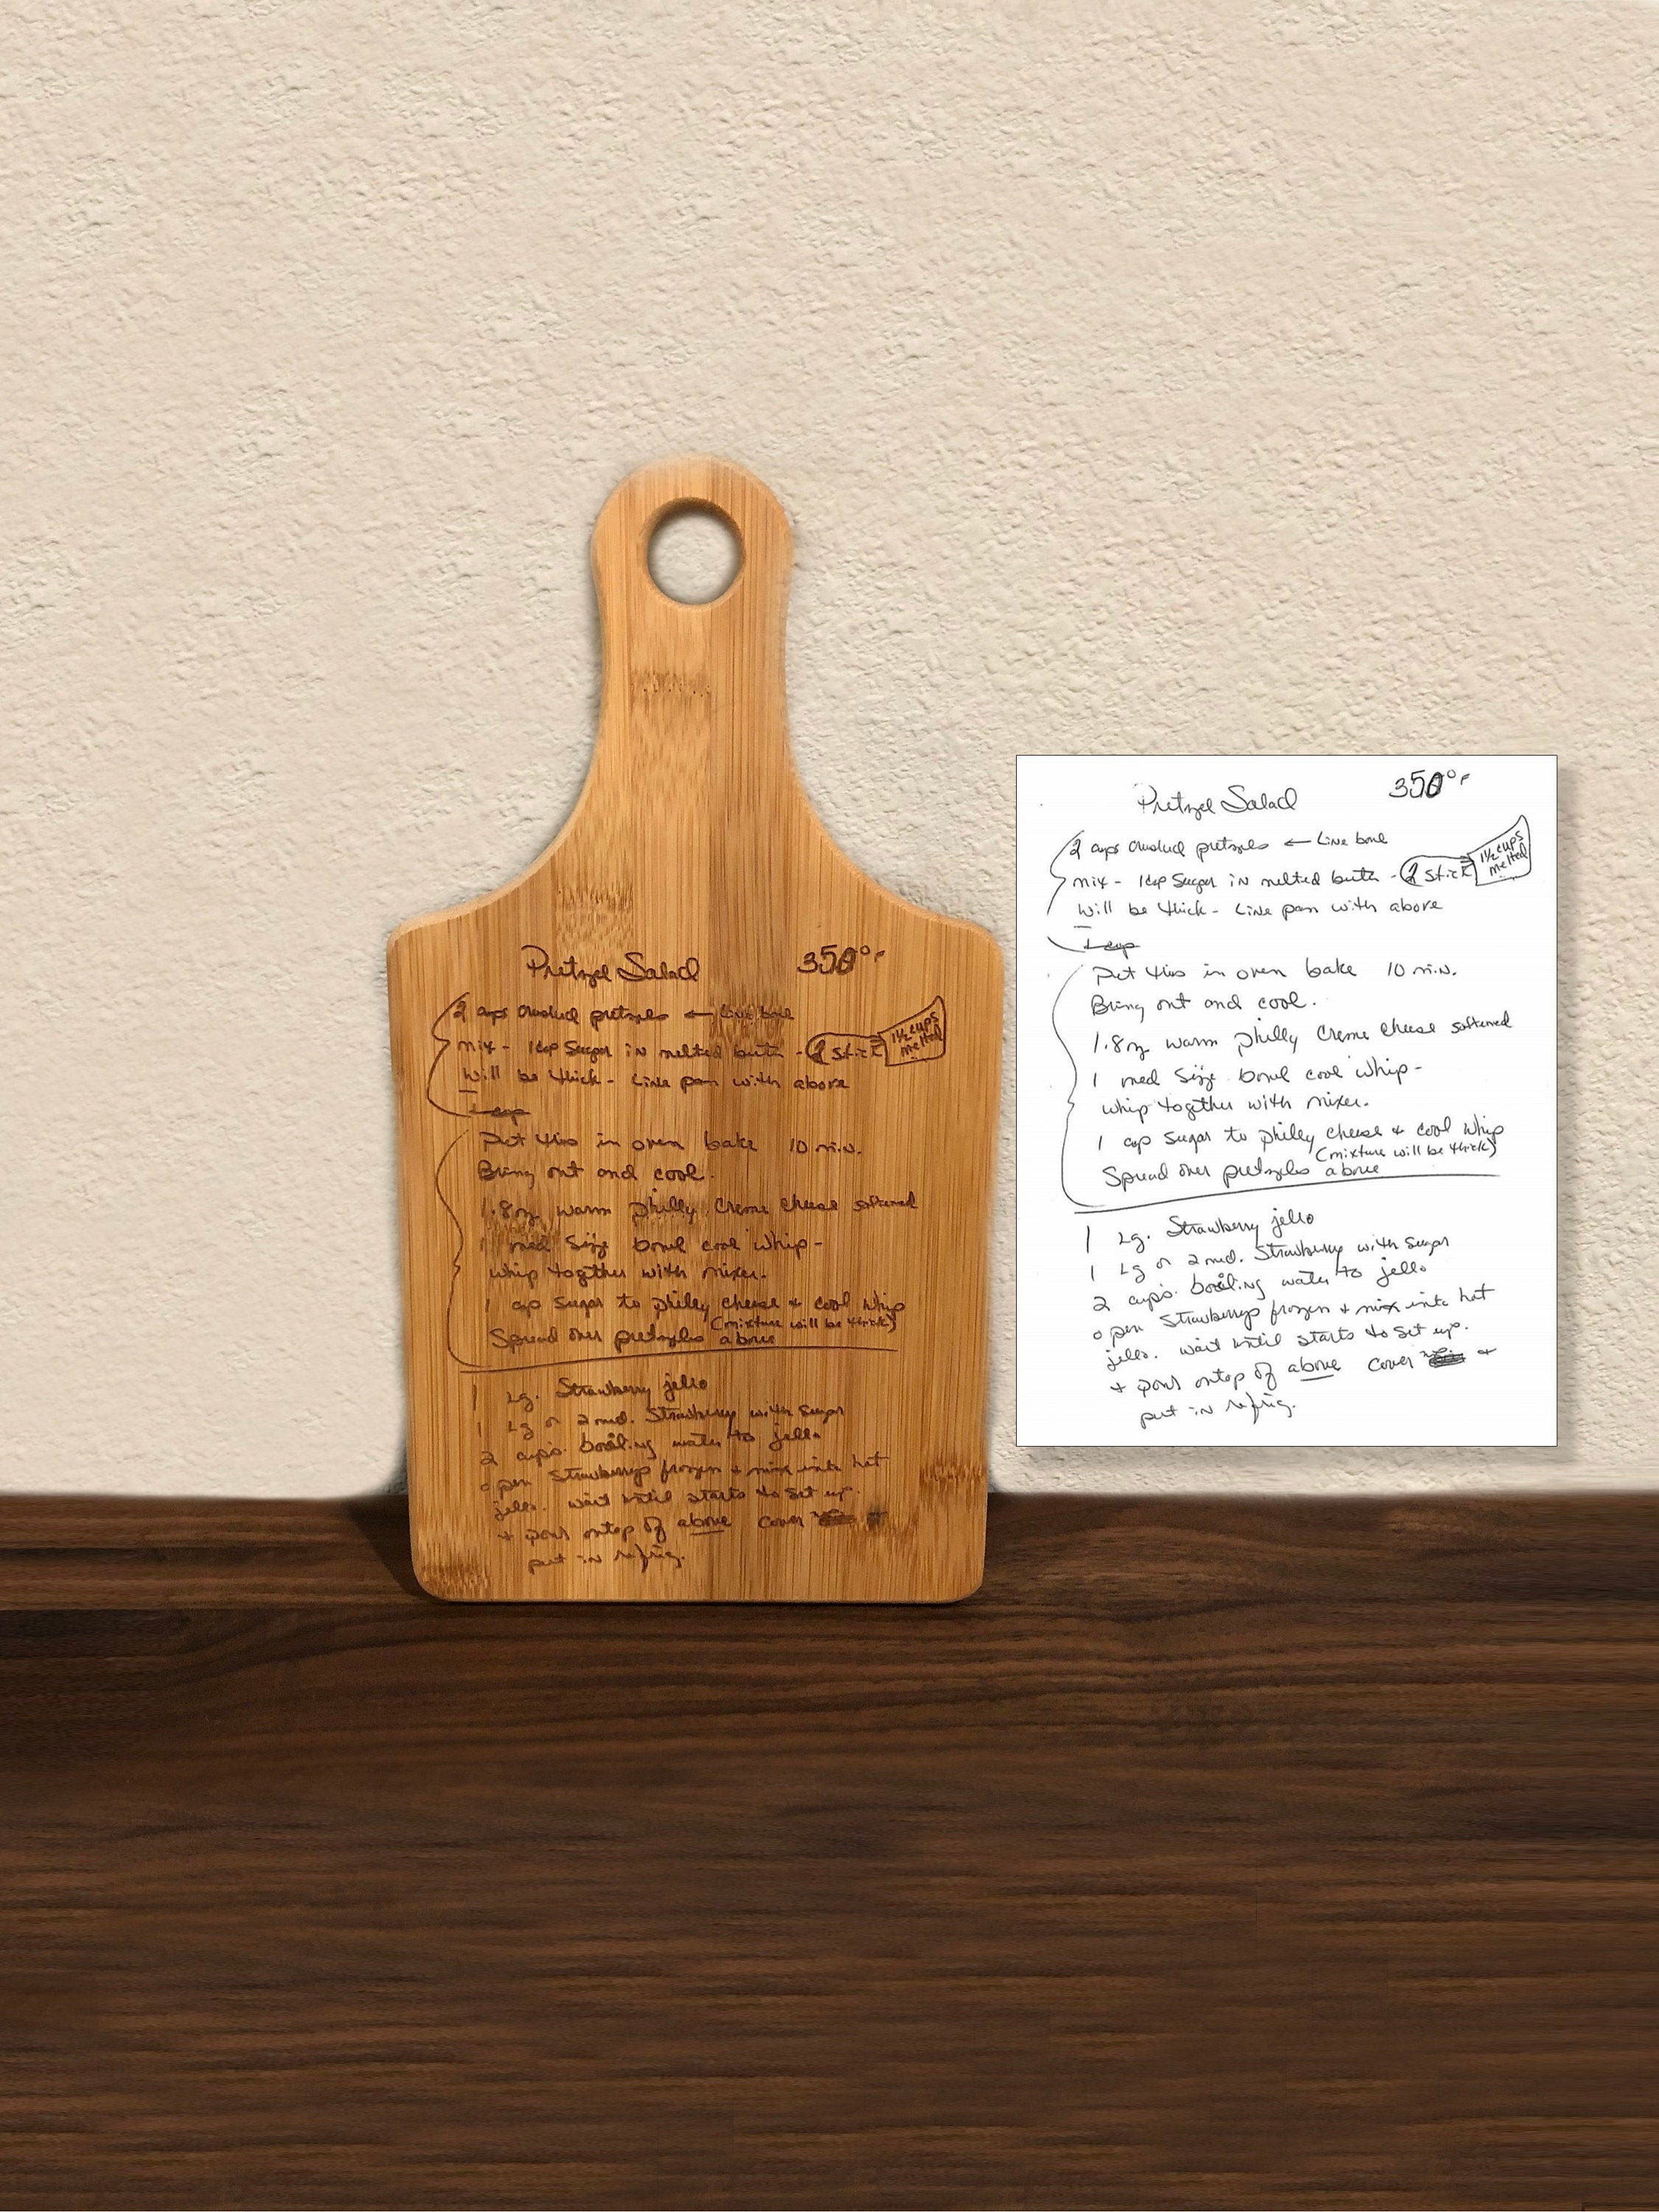 Pretzel Salad 350°F
2 cups crushed pretzels ← Line
mix - 1 cup Sugar in melted butter - 2 stick 1½ cups melted
will be thick - Line pan with above
1 cup
Put this in oven bake 10 min.
Bring out and cool.
1. 8oz warm philly Creme Cheese softened
1 med Size bowl cool whip -
whip together with mixer.
1 cup sugar to philly cheese + cool whip
(mixture will be thick)
Spread over pretzels above
1 Lg. Strawberry jello
1 Lg or 2 med. Strawberry with sugar
2 cups. boiling water to jello
open Strawberrys frozen + mix into hot
jello. wait until starts to set up.
+ pour ontop of above cover +
put in refrig.
Pretzel Salad 350°F
2 cups crushed pretzels ← Line
mix - 1 cup Sugar in melted butter - 2 stick 1½ cups melted
will be thick - Line pan with above
1 cup
Put this in oven bake 10 min.
Bring out and cool.
1. 8oz warm philly Creme Cheese softened
1 med Size bowl cool whip -
whip together with mixer.
1 cup sugar to philly cheese + cool whip
(mixture will be thick)
Spread over pretzels above
1 Lg. Strawberry jello
1 Lg or 2 med. Strawberry with sugar
2 cups. boiling water to jello
open Strawberrys frozen + mix into hot
jello. wait until starts to set up.
+ pour ontop of above cover +
put in refrig.